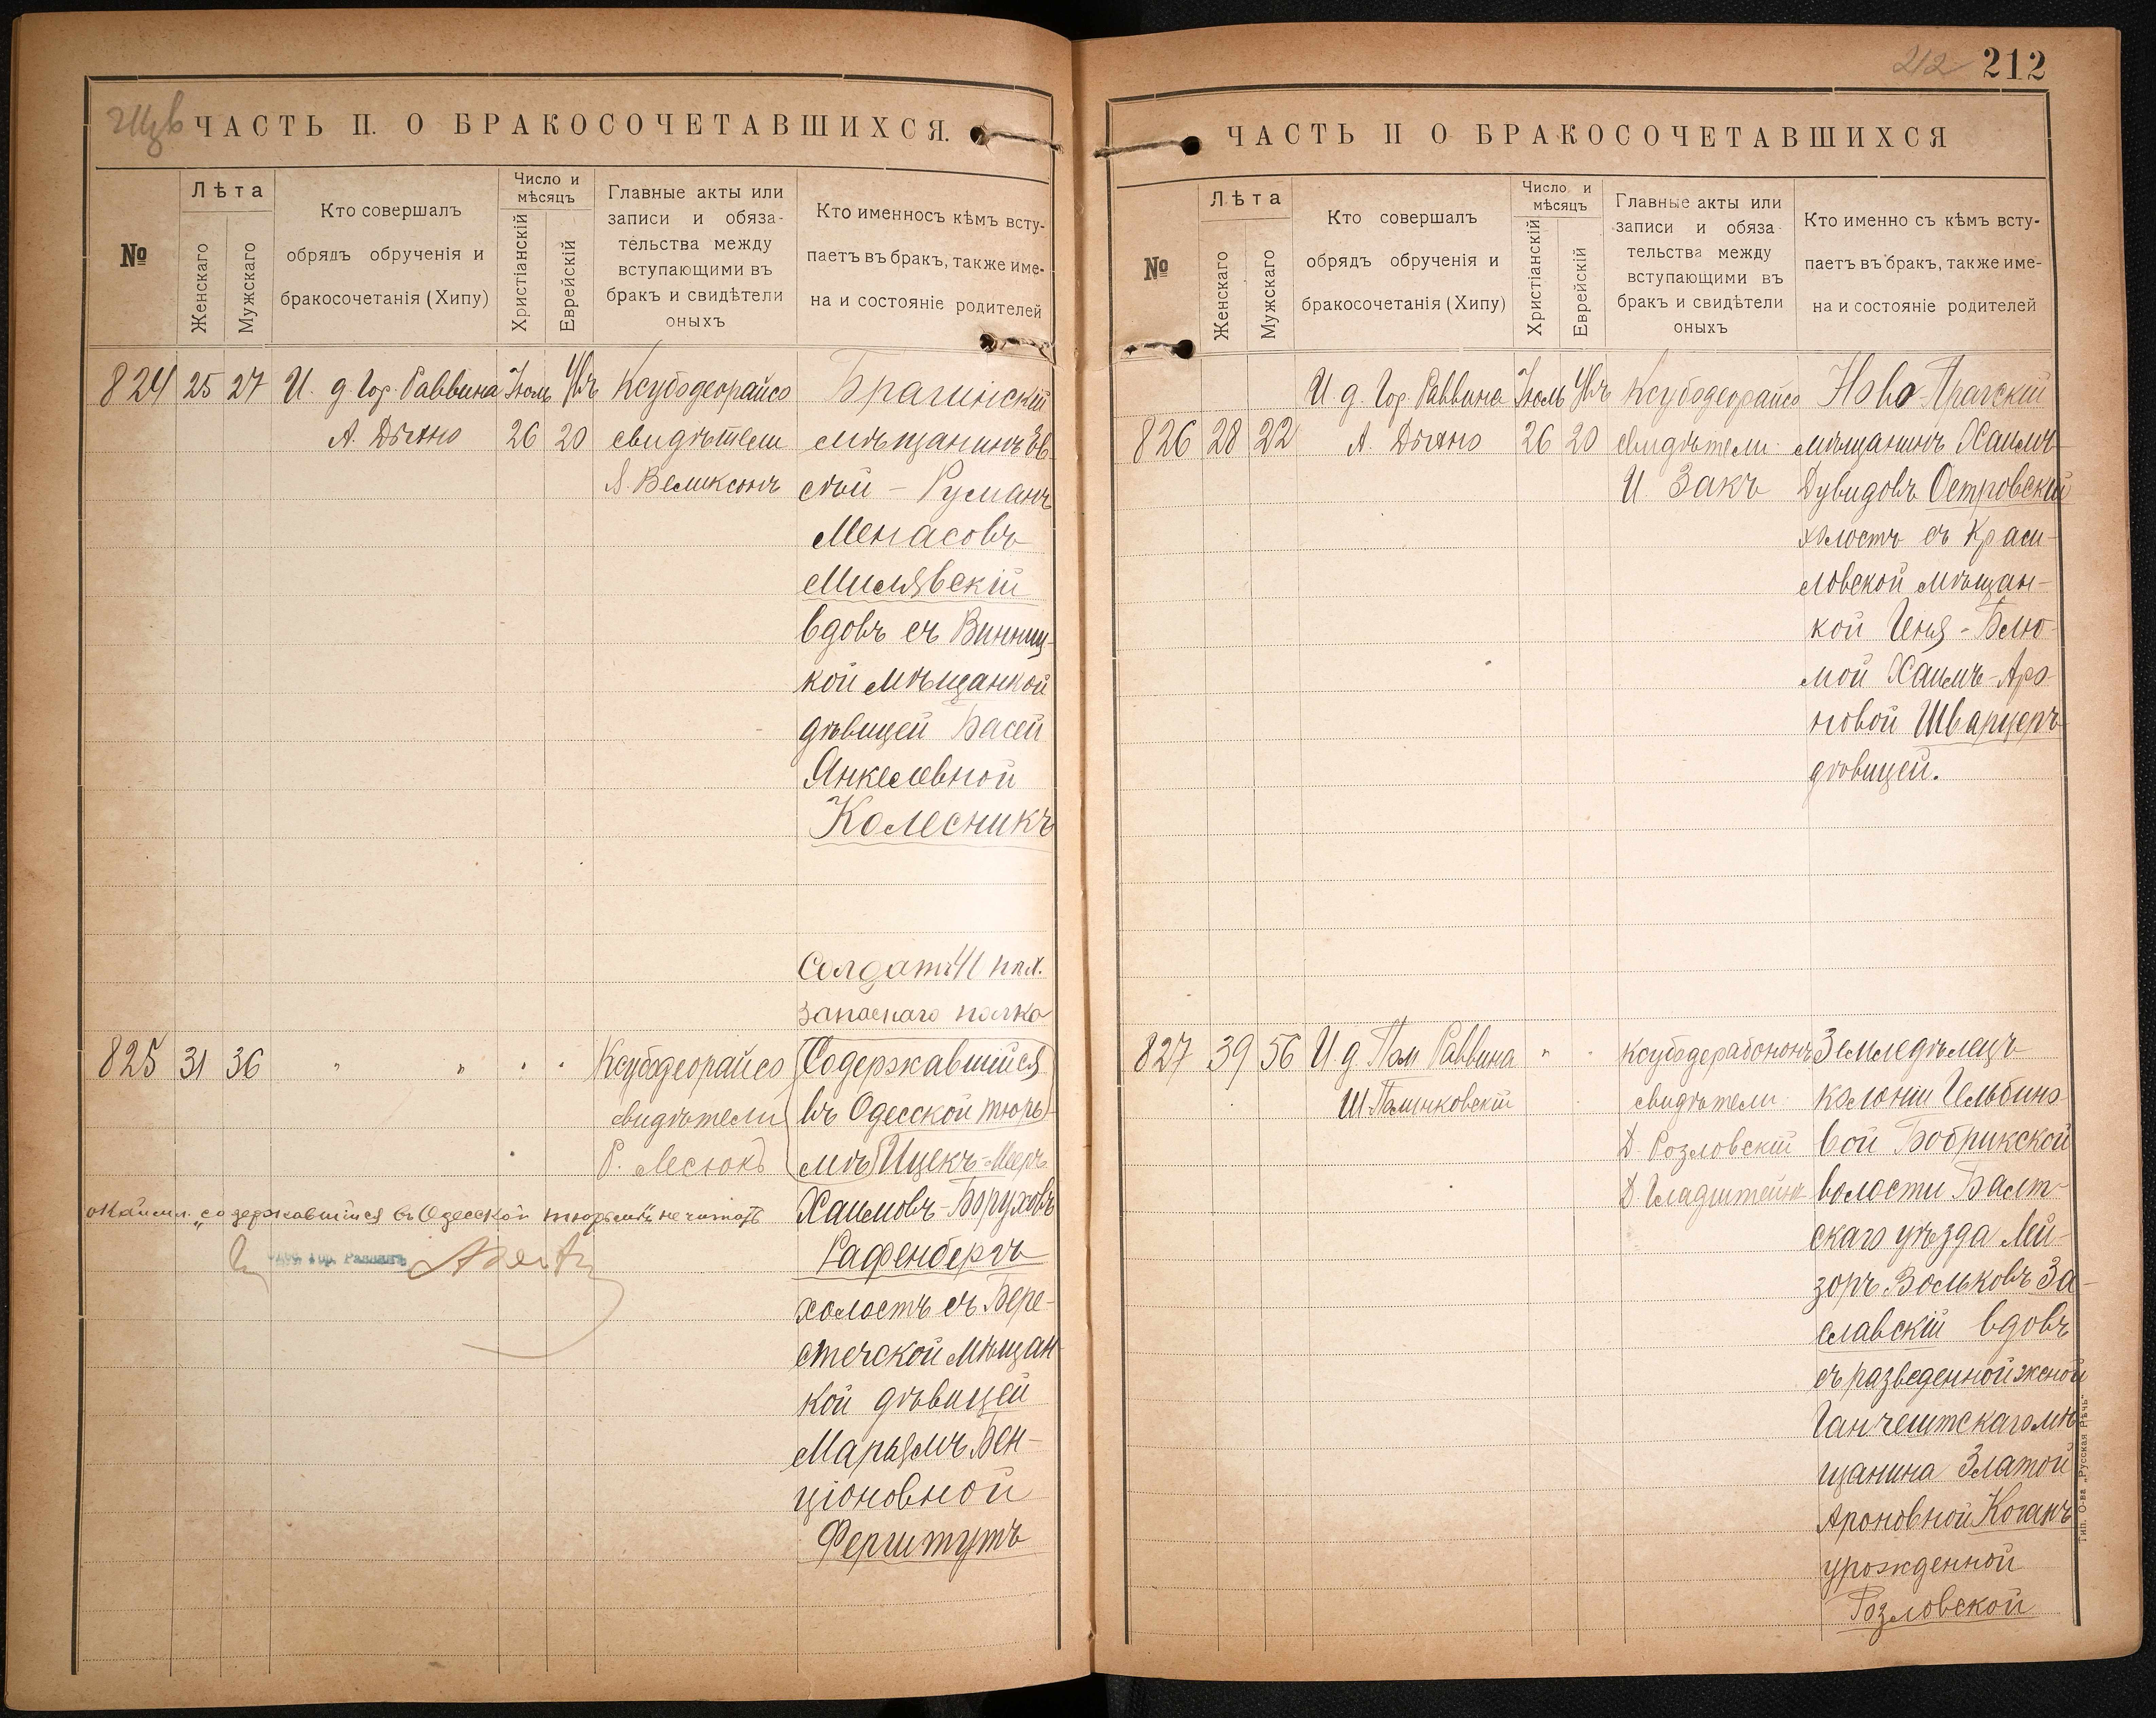 ЧАСТЬ II. О БРАКОСОЧЕТАВШИХСЯ.
№
Лѣта
Женскаго
Мужскаго
Кто совершалъ
обрядъ обрученія и
бракосочетанія (Хипу)
Число и
мѣсяцъ
Христіанскій
Еврейскій
Главные акты или
записи и обяза-
тельства между
вступающими въ
бракъ и свидѣтели
оныхъ
Кто именносъ кѣмъ всту-
паетъ въ бракъ, также име-
на и состояніе родителей
824 25 27
И. д. Гор. Раввина
А. Дыхно
Іюль
26 20
Ксубодеорайсо
свидѣтели
Я. Великсонъ
Брагинскій
мѣщанинъ Ов
сѣй - Руманъ
Менасовъ
Милявскій
вдовъ съ Винниц-
кой мѣщанкой
дѣвицей Басей
Янкелевной
Колесникъ
Солдатъ 41 пѣх.
запаснаго полка
825 31 36 " " " "
Ксубодеорайсо
свидѣтели
Р. Лесюкъ
Содержавшійся
въ Одесской тюрь-
мѣ Ицекъ-Мееръ
Хаимовъ-Боруховъ
Рафенбергъ
холостъ съ Бере-
стечской мѣщан-
кой дѣвицей
Марьямъ Бен-
ціоновной
Ферштутъ
"содержавшійся въ Одесской тюрьмѣ" не читать
Гор. Раввинъ
212 212
ЧАСТЬ II О БРАКОСОЧЕТАВШИХСЯ
№
Лѣта
Женскаго
Мужскаго
Кто совершалъ
обрядъ обрученія и
бракосочетанія (Хипу)
Число и
мѣсяцъ
Христіанскій
Еврейскій
Главные акты или
записи и обяза-
тельства между
вступающими въ
бракъ и свидѣтели
оныхъ
Кто именно съ кѣмъ всту-
паетъ въ бракъ, также име-
на и состояніе родителей
826 28 22
И. д. Гор. Раввина
А. Дыхно
Іюль
26 20
Ксубодеорайсо
свидѣтели
И. Закъ
Ново-Прагскій
мѣщанинъ Хаимъ
Дувидовъ Островскій
холостъ съ Краси-
ловской мѣщан-
кой Геня-Блю-
мой Хаимъ-Аро-
новой Шварцеръ
дѣвицей.
827 39 56
И. д. Пом Раввина
Ш. Полинковскій
" "
Ксубодерабононъ
свидѣтели
Д. Розловскій
Д. Гладштейнъ
Земледѣлецъ
колоніи Гельбино-
вой Бобрикской
волости Балт-
скаго уѣзда Лей-
зоръ Вольковъ За-
славскій вдовъ
съ разведенной женой
Ганчештскаго мѣ-
щанина Златой
Ароновной Коганъ
урожденной
Розловской
Тип. О-ва „Русская Рѣчь“